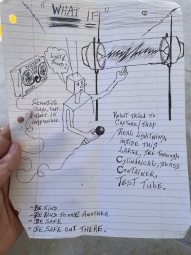 "WHAT IF"
SCIENTISTS
SAYS, THAT
THAT IS
IMPOSSIBLE.
ROBOT TRIED TO
CAPTURE/TRAP
REAL LIGHTNING
INSIDE THIS
LARGE, SEE THROUGH
CYLINDRICAL, GLASS
CONTAINER,
TEST TUBE.
- BE KIND
- BE KIND TO ONE ANOTHER
- BE SAFE
- BE SAFE OUT THERE.